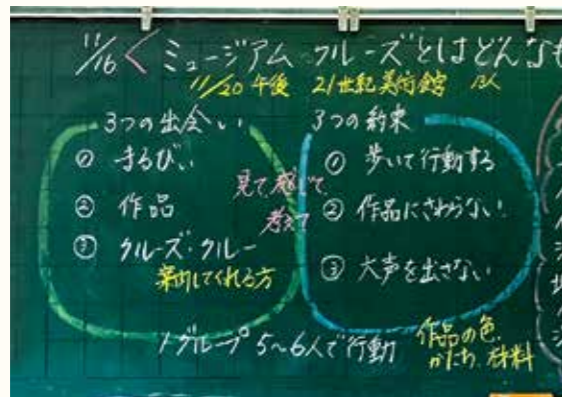 11/16 く ミュージアム クルーズとはどんなも
11/20 午後 21世紀美術館
3つの出会い
① まるびぃ
② 作品
③ クルーズ・クルー
案内してくれる方
見て、感じて、
考えて
3つの約束
① 歩いて行動する
② 作品にさわらない
③ 大声を出さない
1グループ 5〜6人で行動
作品の色、
かたち、材料